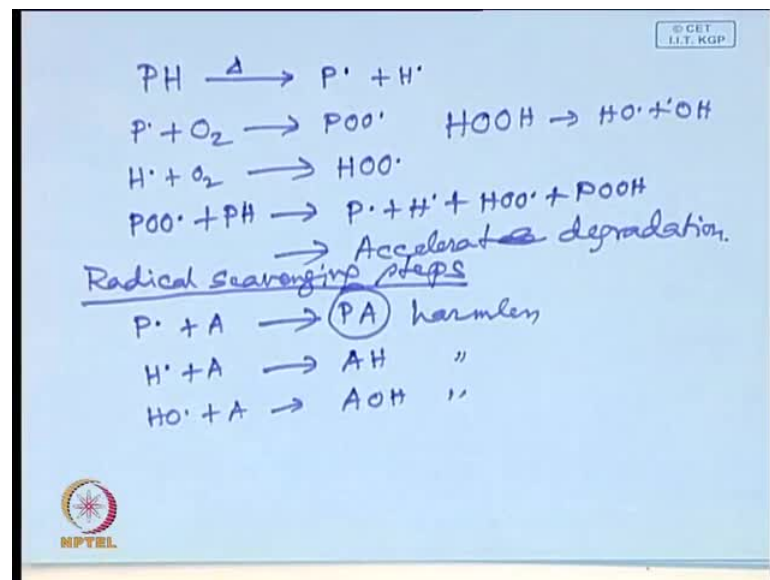 © CET
I.I.T. KGP
PH —Δ→ P• + H•
P• + O₂ → POO• HOOH → HO• + •OH
H• + O₂ → HOO•
POO• + PH → P• + H• + HOO• + POOH
→ Accelerate degradation.
Radical scavenging steps
P• + A → PA harmless
H• + A → AH "
HO• + A → AOH "
NPTEL